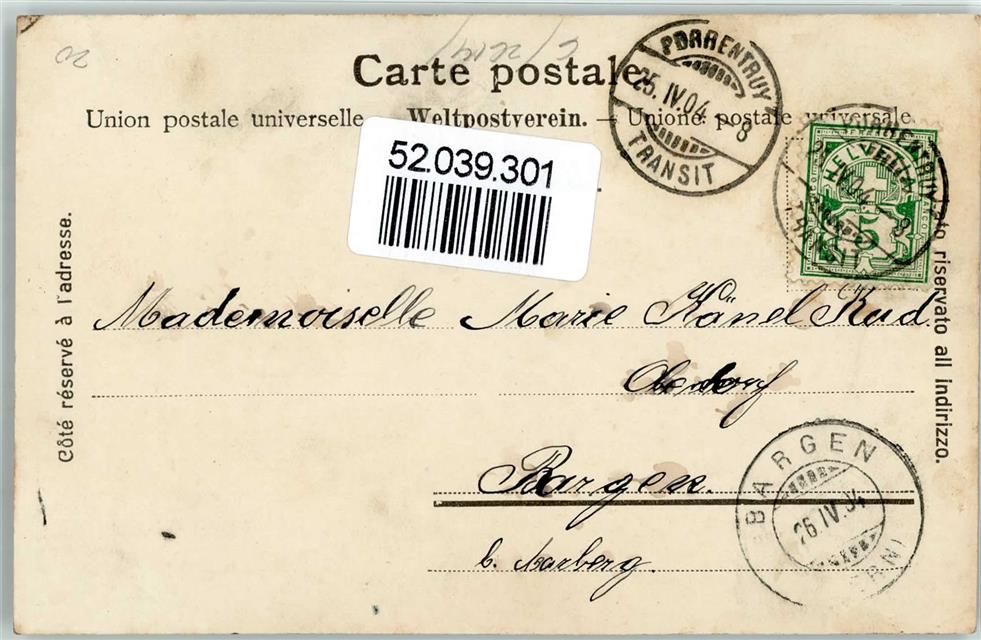 20
Carte postale
Union postale universelle — Weltpostverein. — Unione postale universale
PORRENTRUY
25.IV.04.-8
TRANSIT
PORRENTRUY
25.IV.04.-8
TRANSIT
HELVETIA
5
52.039.301
Côté réservé à l'adresse.
Lato riservato all indirizzo.
Mademoiselle Marie Känel Rud.
Oberdorf
Bargen.
b. Aarberg.
BARGEN
26.IV.04
(BERN)